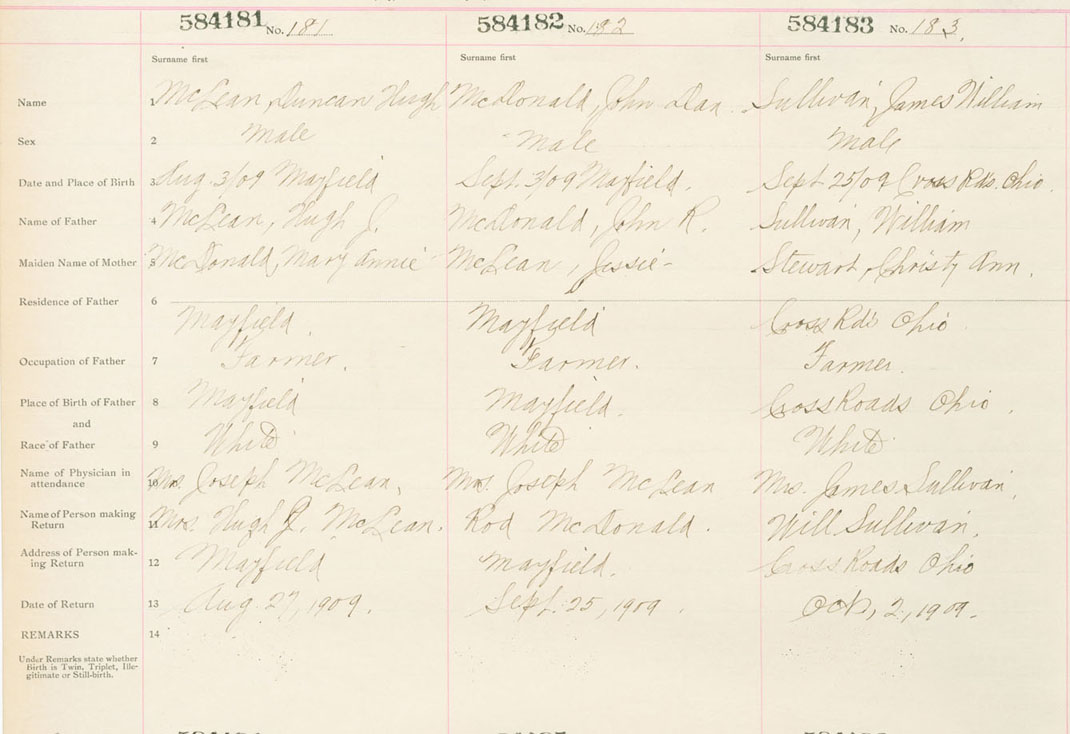 584181 No. 181 584182 No. 182 584183 No. 183.
Surname first Surname first Surname first
Name 1 McLean, Duncan Hugh McDonald, John Dan. Sullivan, James William
Sex 2 Male Male Male
Date and Place of Birth 3 Aug. 3/09 Mayfield Sept. 3/09 Mayfield. Sept 25/09 Cross Rds. Ohio.
Name of Father 4 McLean, Hugh J. McDonald, John R. Sullivan, William
Maiden Name of Mother 5 McDonald, Mary Annie McLean, Jessie- Stewart, Christy Ann.
Residence of Father 6
Mayfield. Mayfield Cross Rds Ohio.
Occupation of Father 7 Farmer. Farmer. Farmer.
Place of Birth of Father 8 Mayfield Mayfield. Cross Roads Ohio.
and
Race of Father 9 White White White
Name of Physician in
attendance 10 Mrs. Joseph McLean, Mrs. Joseph McLean Mrs. James Sullivan,
Name of Person making
Return 11 Mrs. Hugh J. McLean. Rod McDonald. Will Sullivan.
Address of Person mak-
ing Return 12 Mayfield Mayfield. Cross Roads Ohio
Date of Return 13 Aug. 27, 1909. Sept. 25, 1909. Oct, 2, 1909.
REMARKS 14
Under Remarks state whether
Birth is Twin, Triplet, Ille-
gitimate or Still-birth.